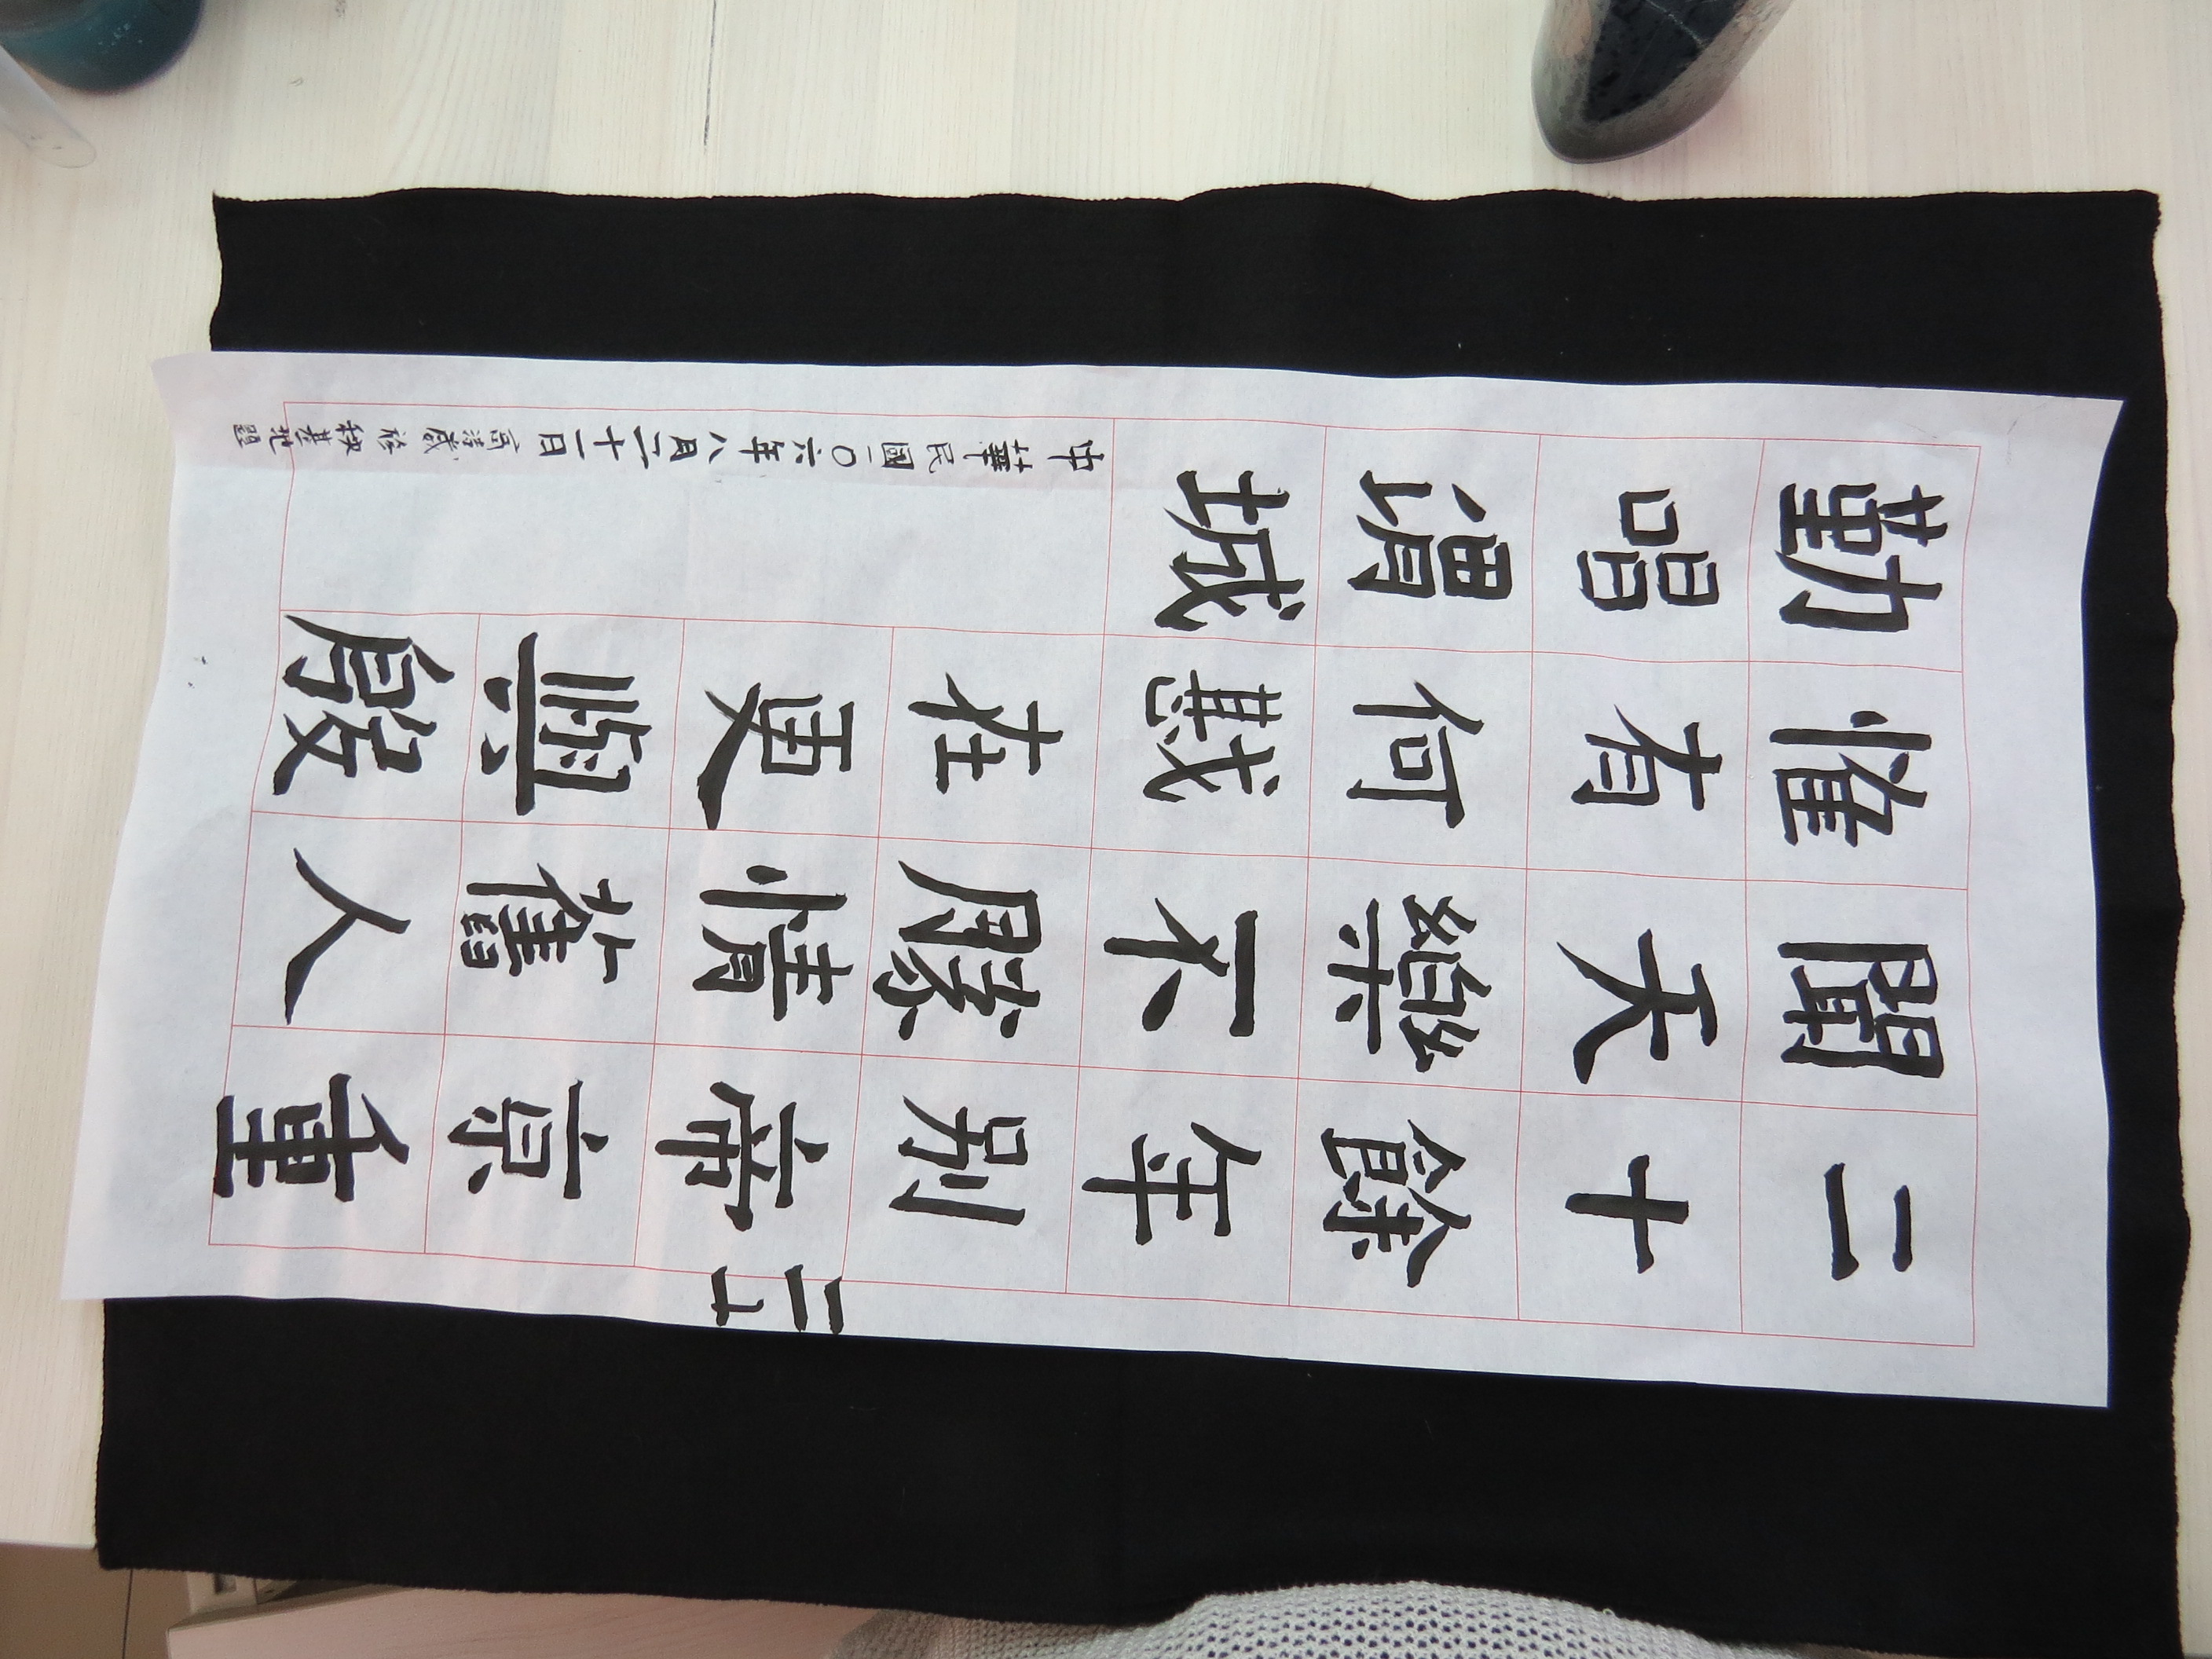 二十餘年別帝京重
聞天樂不勝情舊人
惟有何戡在更與殷
勤唱渭城
中華民國一〇六年八月二十一日